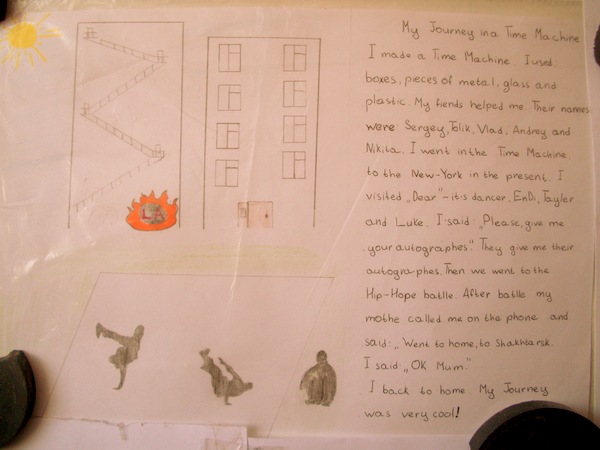 My Journey in a Time Machine
I made a Time Machine. I used
boxes, pieces of metal, glass and
plastic. My fiends helped me. Their names
were Sergey, Tolik, Vlad, Andrey and
Nikita. I went in the Time Machine
to the New-York in the present. I
visited „Dear"-it's dancer, EnDi, Tayler
and Luke. I said: „Please, give me
your autographes". They give me their
autographes. Then we went to the
Hip-Hope batlle. After batlle my
mothe called me on the phone and
said: „Went to home, to Shakhtarsk.
I said „OK Mum."
I back to home. My Journey
was very cool!